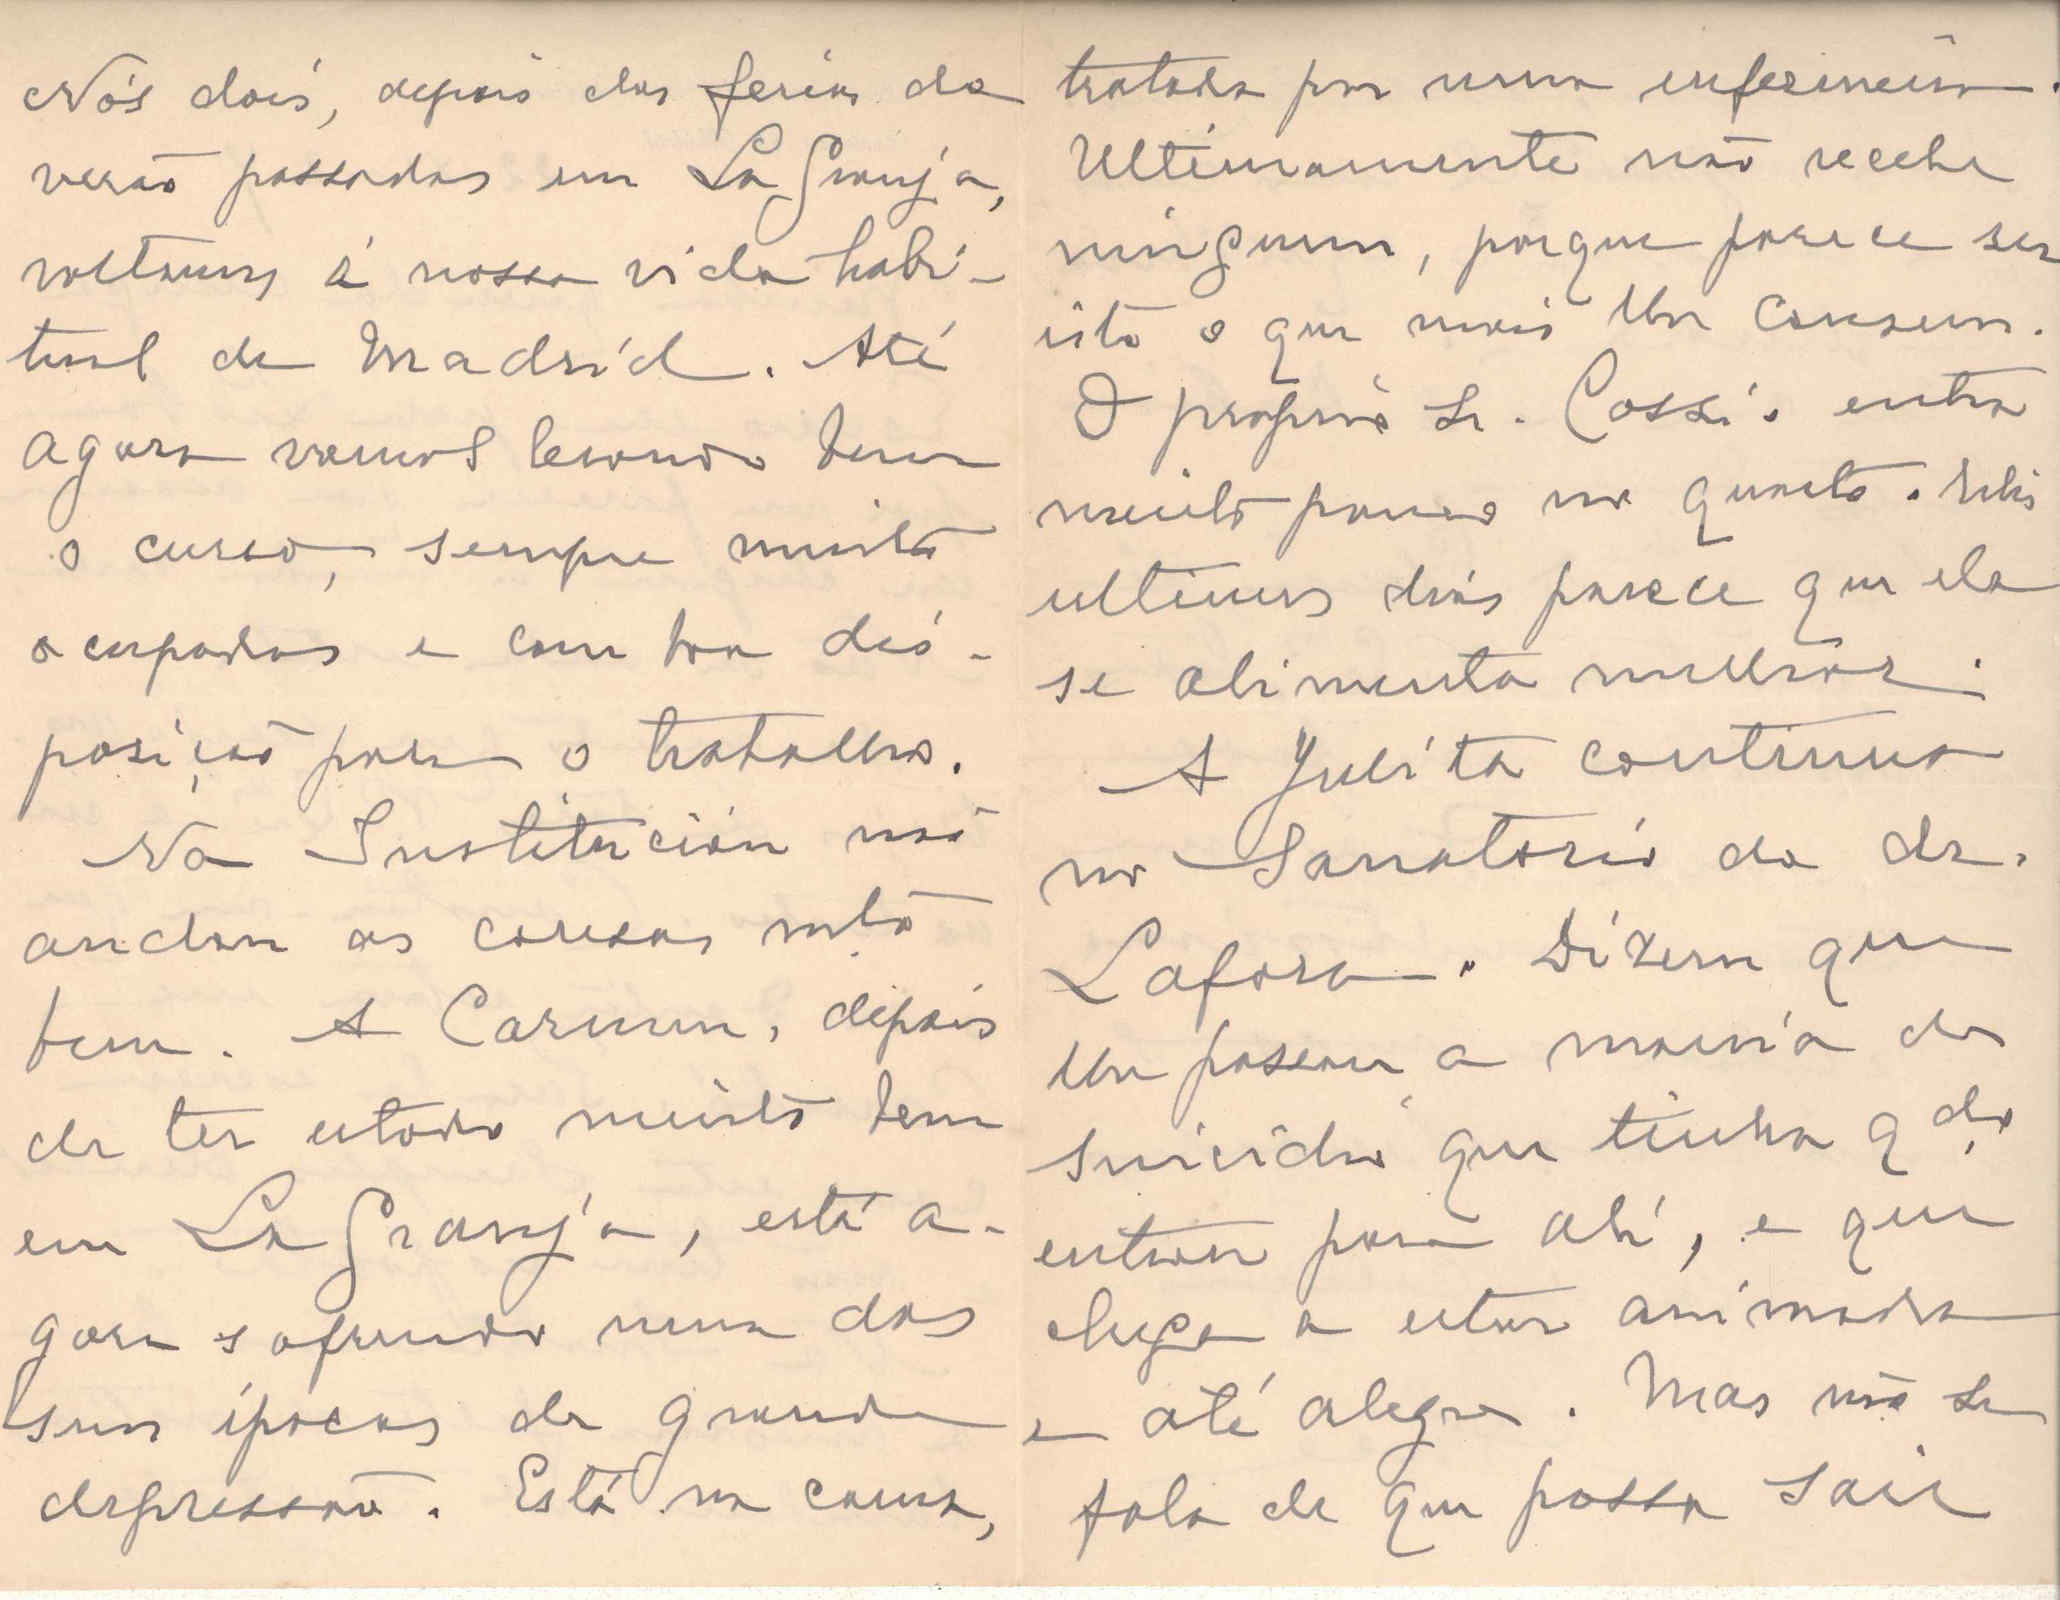 Nós dois, depois das ferias do
verão passadas em La Granja,
voltamos á nossa vida habi-
tual de Madrid. Até
agora vamos levando bem
o curso, sempre muito
ocupados e com boa dis-
posição para o trabalho.
Na Institución não
andam as coisas mto
bem. A Carmen, depois
de ter estado muito bem
em La Granja, está a-
gora sofrendo uma das
suas épocas de grande
depressão. Está na cama,
tratada por uma enfermeira.
Ultimamente não recebe
ninguem, porque parece ser
isto o que mais lhe cansam.
O proprio Sr. Cossío entra
muito pouco no quarto. Nestes
ultimos dias parece que ela
se alimenta melhor.
A Julita continua
no Sanatorio do dr.
Lafora. Dizem que
lhe passou a mania do
suicidio que tinha qdo
entrou para ali, e que
chega a estar animada
e até alegre. Mas não se
fala de que possa sair